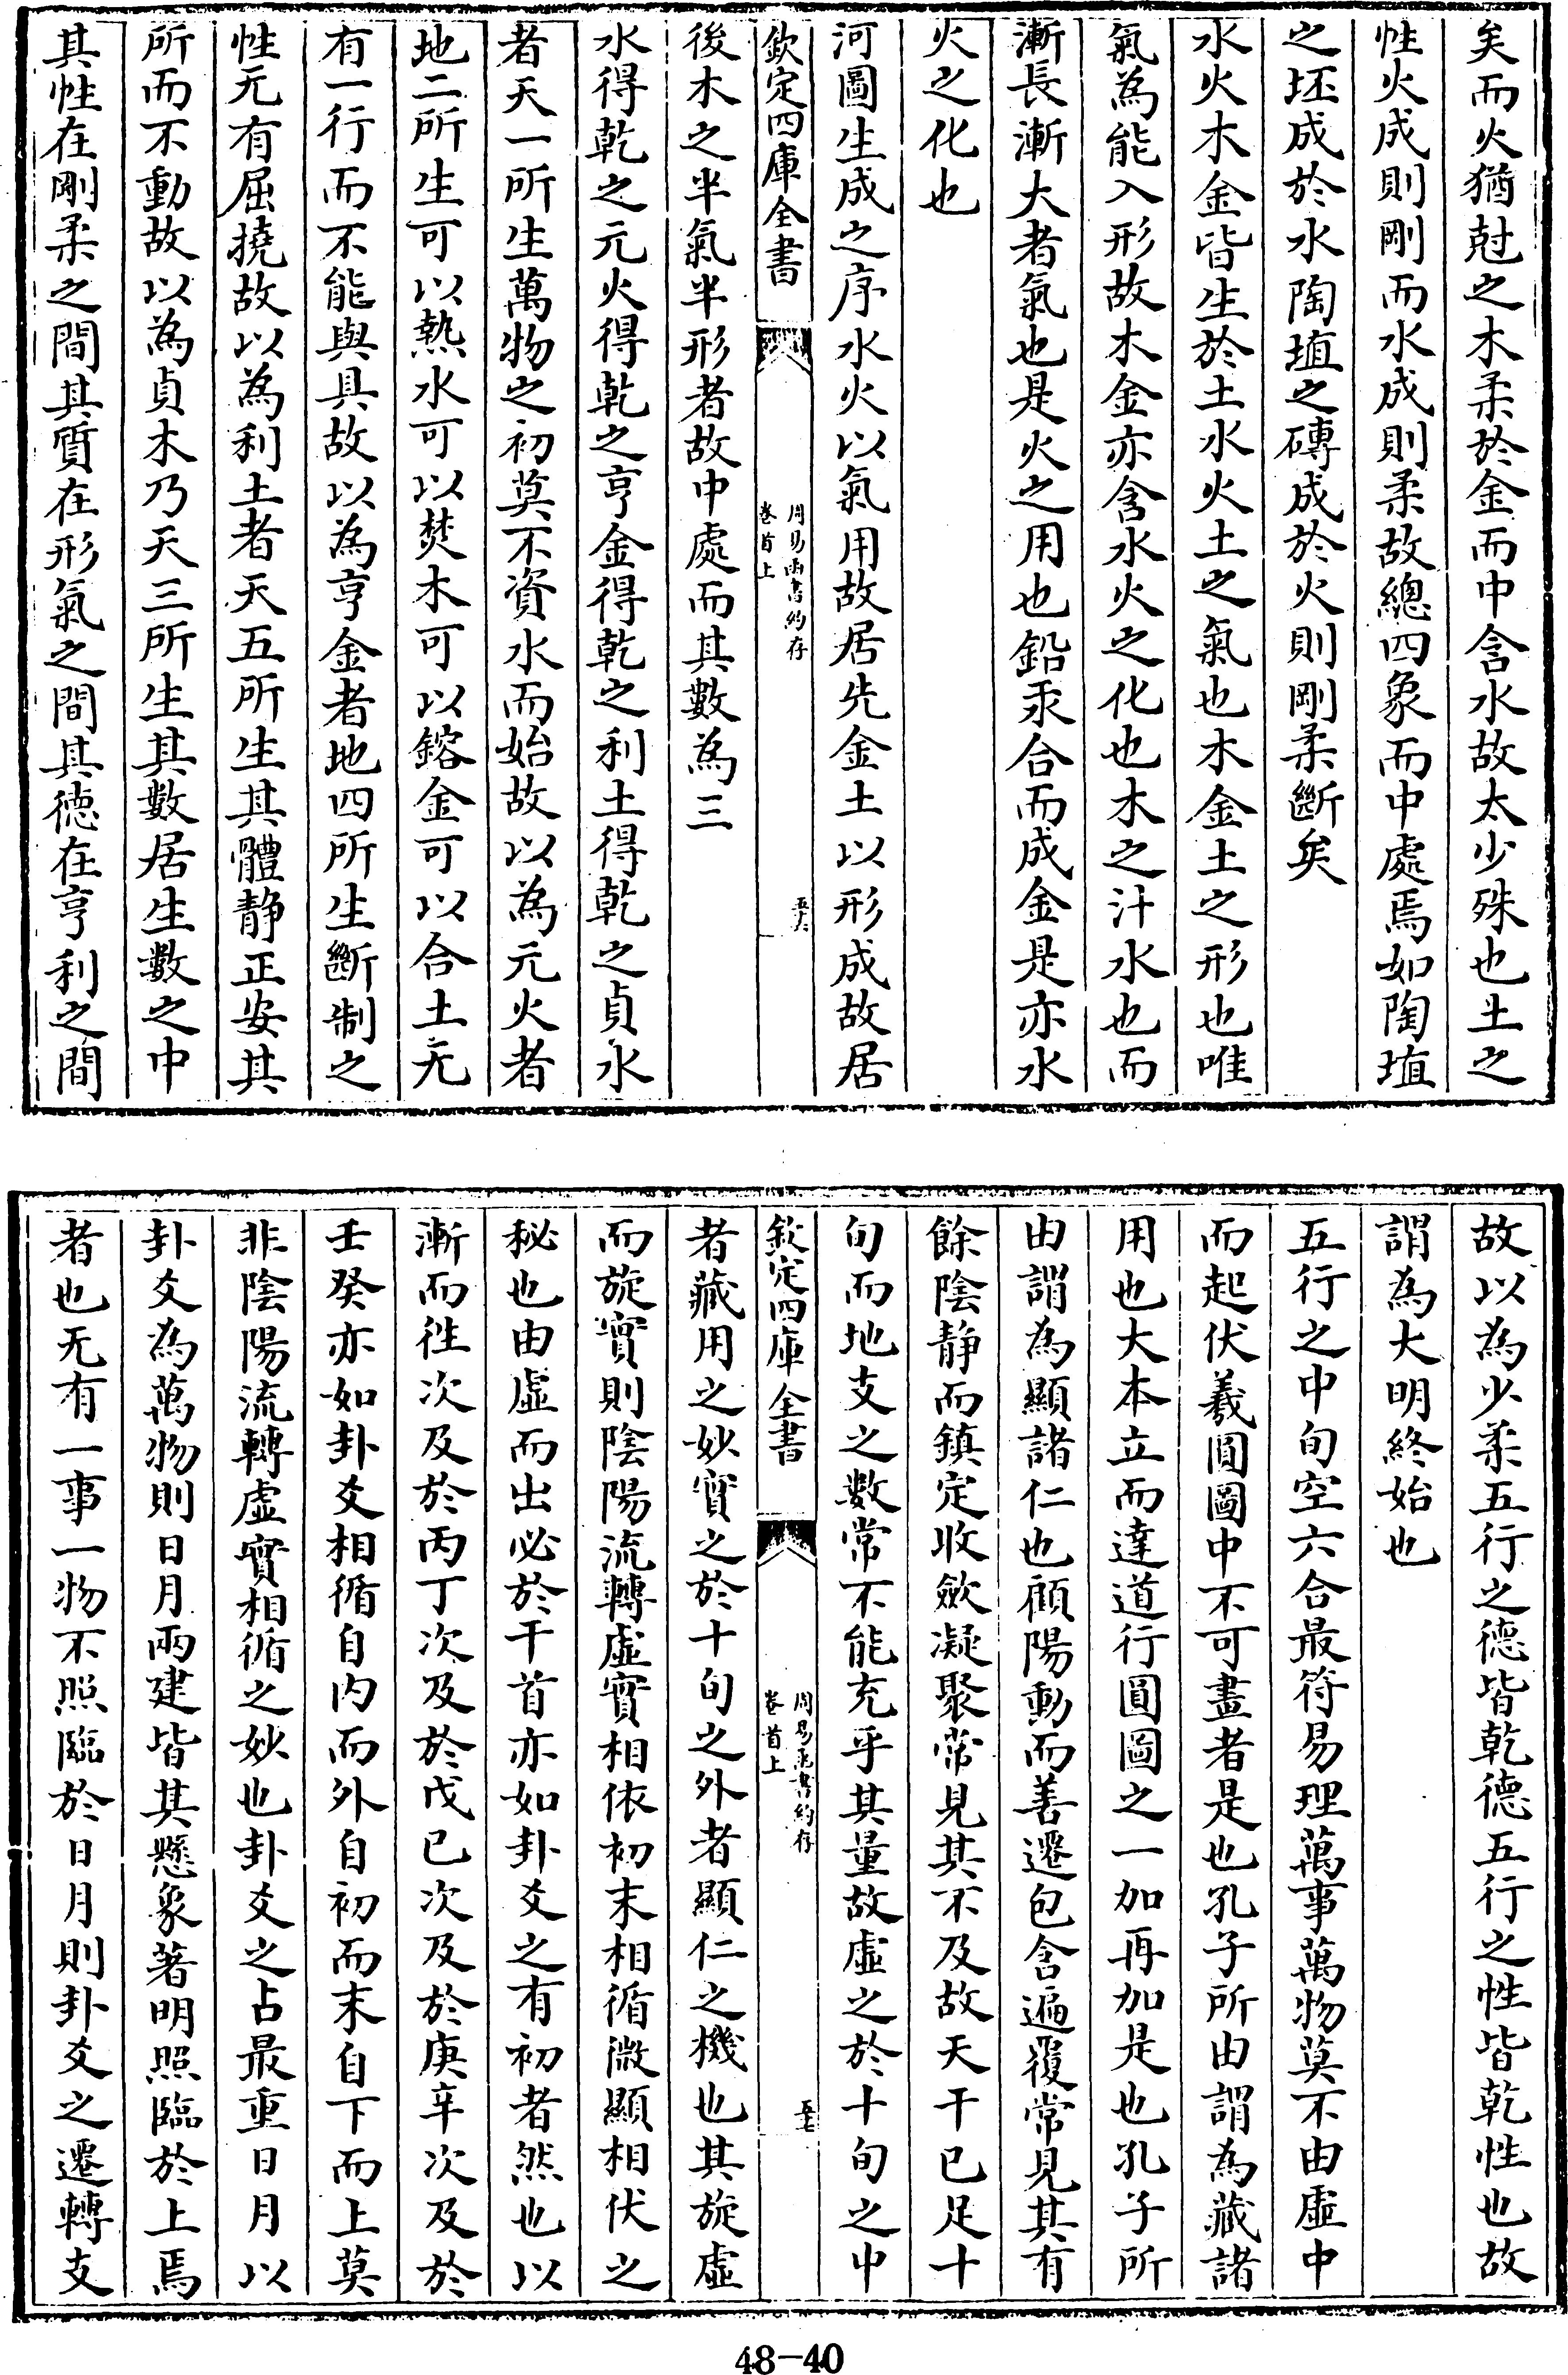 矣而火猶尅之木柔於金而中含水故太少殊也土之
性火成則剛而水成則柔故總四象而中處焉如陶埴
之坯成於水陶埴之磚成於火則剛柔斷矣
水火木金皆生於土水火土之氣也木金土之形也唯
氣為能入形故木金亦含水火之化也木之汁水也而
漸長漸大者氣也是火之用也鉛汞合而成金是亦水
火之化也
河圖生成之序水火以氣用故居先金土以形成故居
欽定四庫全書
周易函書約存
卷首上
五六
後木之半氣半形者故中處而其數為三
水得乾之元火得乾之亨金得乾之利土得乾之貞水
者天一所生萬物之初莫不資水而始故以為元火者
地二所生可以熱水可以焚木可以鎔金可以合土无
有一行而不能與具故以為亨金者地四所生斷制之
性无有屈撓故以為利土者天五所生其體静正安其
所而不動故以為貞木乃天三所生其數居生數之中
其性在剛柔之間其質在形氣之間其德在亨利之間
故以為少柔五行之德皆乾德五行之性皆乾性也故
謂為大明終始也
五行之中旬空六合最符易理萬事萬物莫不由虛中
而起伏羲圓圖中不可畫者是也孔子所由謂為藏諸
用也大本立而達道行圓圖之一加再加是也孔子所
由謂為顯諸仁也顧陽動而善遷包含遍覆常見其有
餘陰静而鎮定收斂凝聚常見其不及故天干已足十
旬而地支之數常不能充乎其量故虛之於十旬之中
欽定四庫全書
周易函書約存
卷首上
五七
者藏用之妙實之於十旬之外者顯仁之機也其旋虛
而旋實則陰陽流轉虛實相依初末相循微顯相伏之
秘也由虛而出必於干首亦如卦爻之有初者然也以
漸而徃次及於丙丁次及於戊已次及於庚辛次及於
壬癸亦如卦爻相循自内而外自初而末自下而上莫
非陰陽流轉虛實相循之妙也卦爻之占最重日月以
卦爻為萬物則日月兩建皆其懸象著明照臨於上焉
者也无有一事一物不照臨於日月則卦爻之遷轉支
48-40